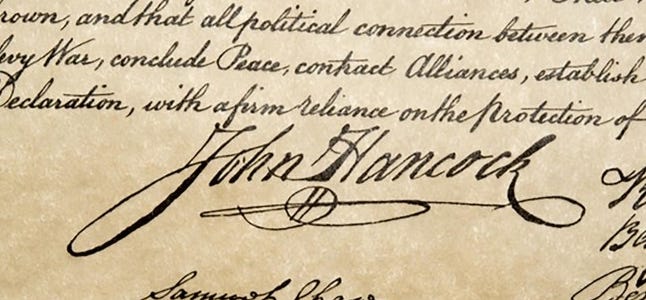 rown, and that all political connection between
levy War, conclude Peace, contract Alliances, establish
Declaration, with a firm reliance on the Protection of
John Hancock
Samuel Chase